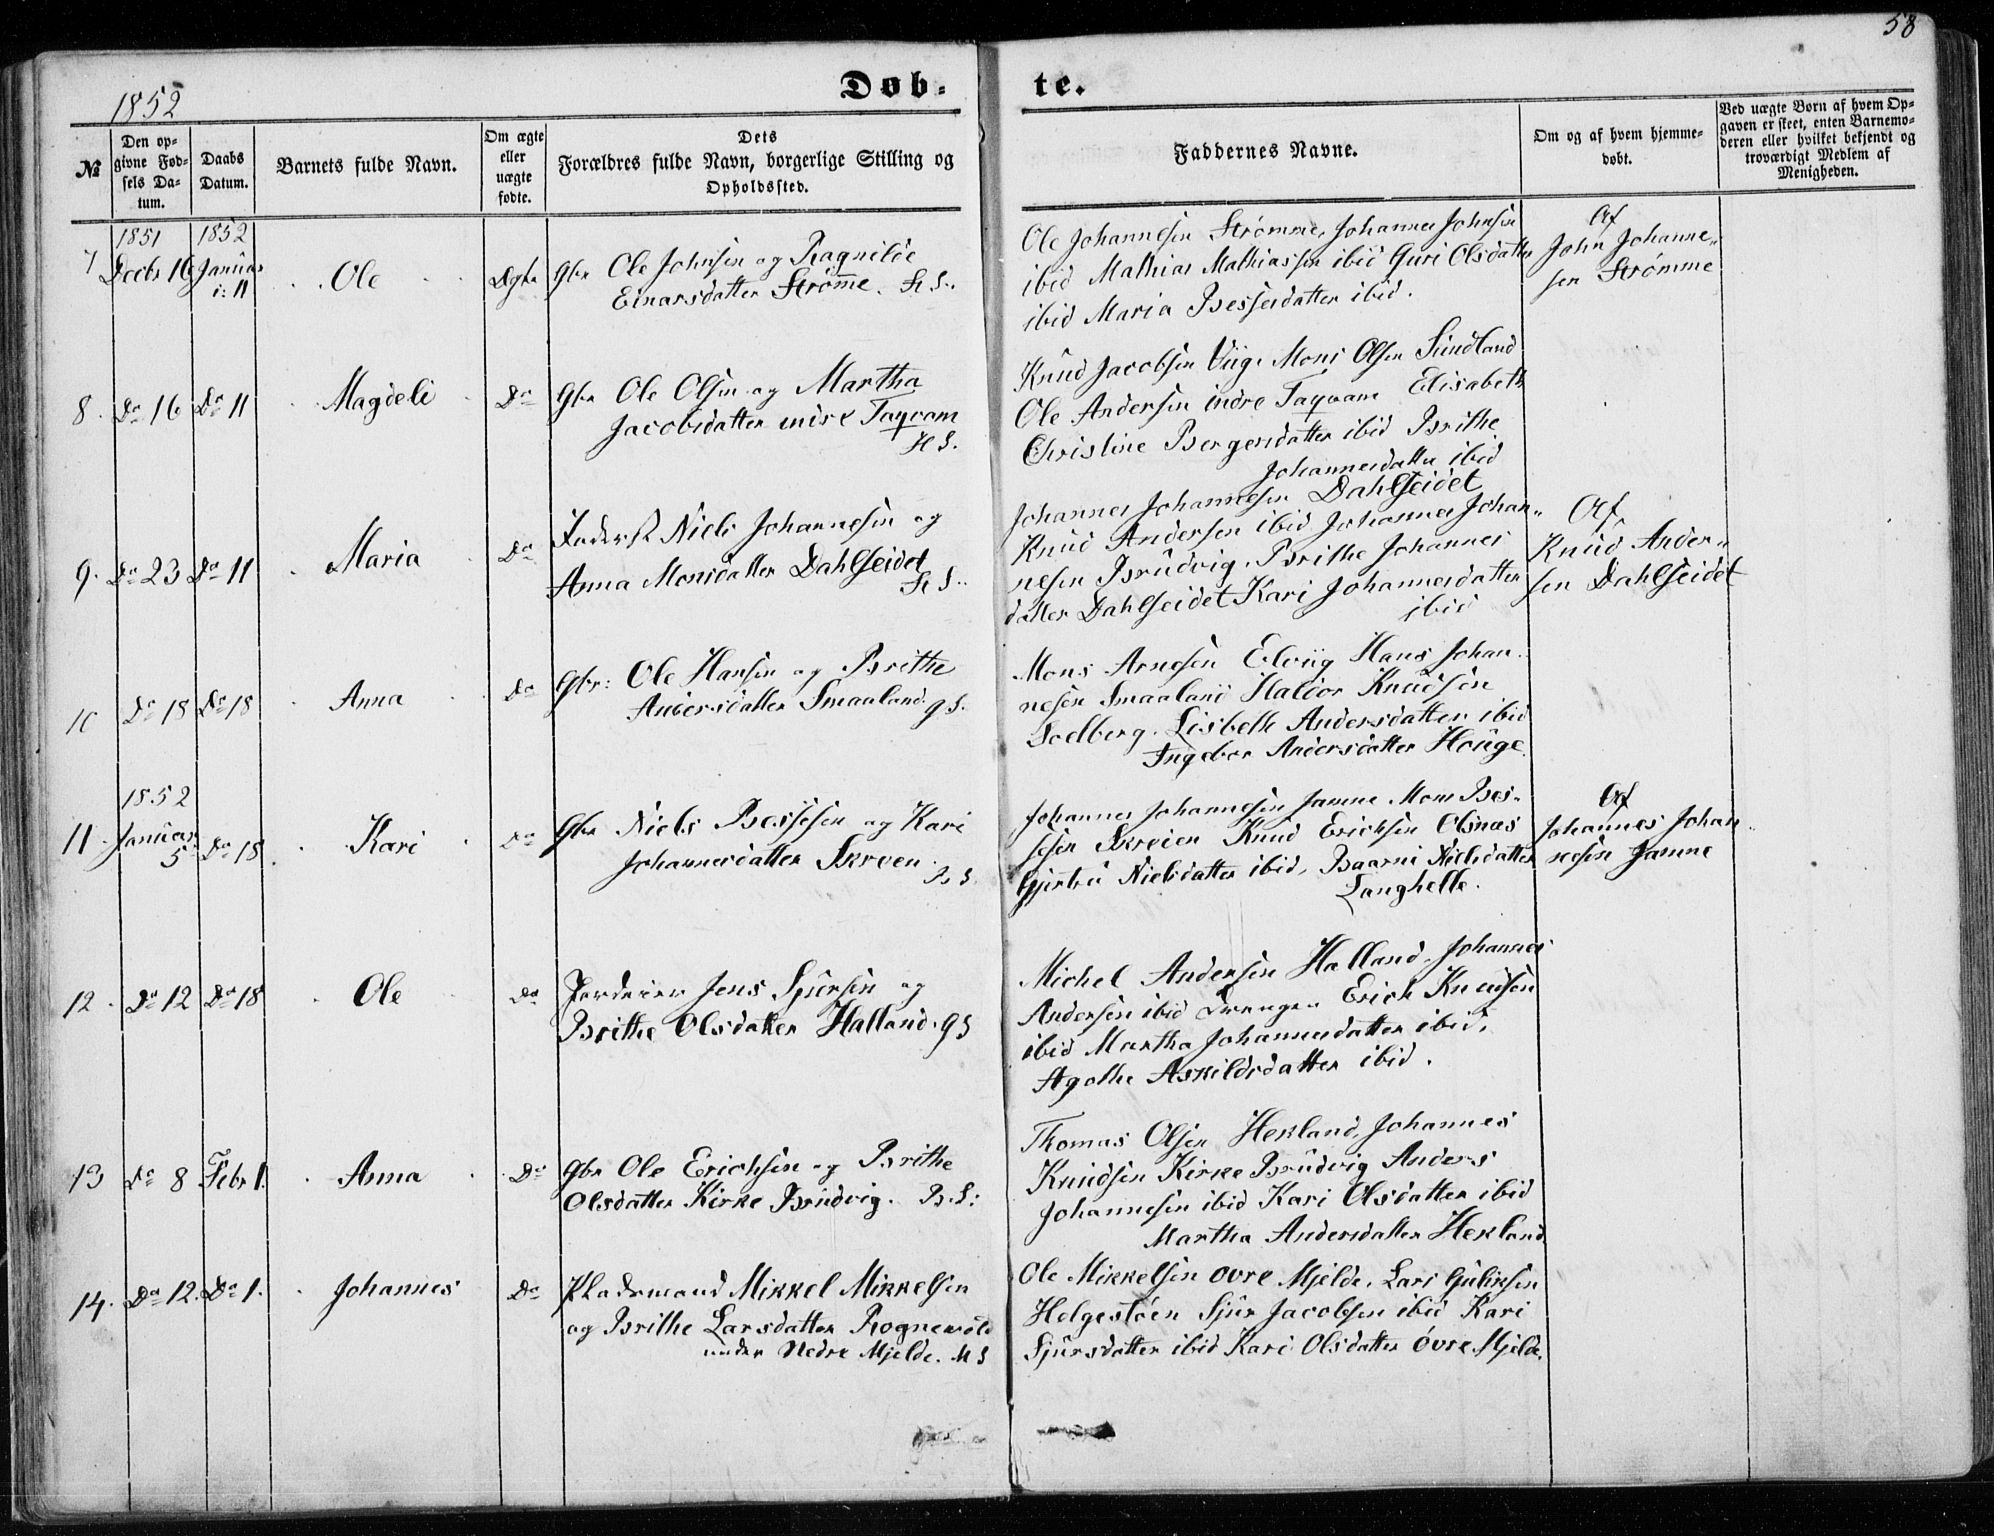 58
1852
Døb-
te.
№
Den op-
givne Fød-
sels Da-
tum.
Daabs
Datum.
Barnets fulde Navn.
Om ægte
eller
uægte
fødte.
Dets
Forældres fulde Navn, borgerlige Stilling og
Opholdssted.
Faddernes Navne.
Om og af hvem hjemme-
døbt.
Ved uægte Børn af hvem Op-
gaven er skeet, enten Barnemo-
deren eller hvilket bekjendt og
troværdigt Medlem af
Menigheden.
7
1851
Decbr 16
1852
Januar
i: 11
Ole
Ægte
Gbr Ole Johnsen og Ragnilde
Einarsdatter Strømme. H S.
Ole Johannesen Strømme, Johannes Johnsen
ibid Mathias Mathiassen ibid Guri Olsdatter
ibid Maria Bessesdatter ibid.
Af
John Johanne-
sen Strømme
8. Do 16 Do 11
Magdeli
Do
Gbr Ole Olsen og Martha
Jacobsdatter indre Taqvam
H S.
Knud Jacobsen Viig, Mons Olsen Sundland
Ole Andersen indre Taqvam Elisabeth
Christine Bergersdatter ibid Brithe
Johannesdatter ibid
9. Do 23 Do 11
Maria
Do
Inderst Niels Johannesen og
Anna Monsdatter Dahlseidet
H S.
Johannes Johannesen Dahlseidet
Knud Andersen ibid Johannes Johan-
nesen Brudvig, Brithe Johannes
datter Dahlseidet Kari Johannesdatter
ibid
Af
Knud Ander-
sen Dahlseidet
10 Do 18 Do 18
Anna
Do
Gbr: Ole Hansen og Brithe
Andersdatter Smaaland. G S.
Mons Arnesen Elviig Hans Johan-
nesen Smaaland Haldor Knudsen
Sodberg. Lisbeth Andersdatter ibid
Ingebor Andersdatter Houge.
11.
1852
Januar
5 Do 18
Kari
Do
Gbr Niels Bessesen og Kari
Johannesdatter Skreen.
B S.
Johannes Johannesen Jamne. Mons Bes-
sesen Skreien Knud Erichsen Olsnæs
Gjertru Nielsdatter ibid, Baarni Nielsdatter
Langhelle.
Af
Johannes Johan-
nesen Jamne
12. Do 12 Do 18
Ole
Do
Jens Sjursen og
Brithe Olsdatter Halland. G S
Michel Andersen Halland. Johannes
Andersen ibid Erich Knudsen
ibid Martha Johannesdatter ibid,
Agothe Askildsdatter ibid.
13 Do 8 Febr 1.
Anna
Do
Gbr Ole Erichsen og Brithe
Olsdatter Kirke Brudvig. B. S:
Thomas Olsen Hekland, Johannes
Knudsen Kirke Brudvig Anders
Johannesen ibid Kari Olsdatter ibid
Martha Andersdatter Hekland.
14. Do 12. Do 1.
Johannes
Do
Pladsmand Mikkel Mikkelsen
og Brithe Larsdatter Rognevold
under Nedre Mjelde. M S
Ole Mikkelsen øvre Mjelde. Lars Guliksen
Helgestøen Sjur Jacobsen ibid Kari
Sjursdatter ibid Kari Olsdatter øvre Mjelde.